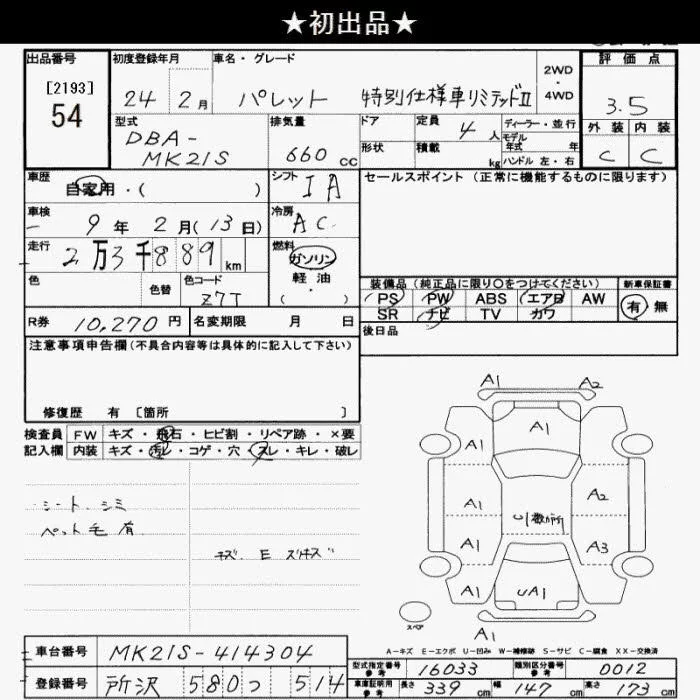 ★初出品★
出品番号 初度登録年月 車名・グレード 2WD・4WD 評価点
[2193] 54 24 2月 パレット 特別仕様車リミテッドII 3.5
型式 排気量 ドア 定員 4人 ディーラー・並行 外装 内装
DBA-MK21S 660cc 形状 積載 kg モデル年式 年 ハンドル 左・右 C C
車歴 自家用・( ) シフト IA セールスポイント (正常に機能するものに限ります)
車検 9年 2月(13日) 冷房 AC
走行 2万3千889km 燃料 ガソリン 軽油 ( ・ )
色 色替 色コード Z7T 装備品(純正品に限り○をつけてください) 新車保証書
PS PW ABS エアB AW 有・無
SR ナビ TV カワ
R券 10,270円 名変期限 月 日 後日品
注意事項申告欄(不具合内容等は具体的に記入して下さい)
修復歴 有 [箇所 ]
検査員 FW キズ・飛石・ヒビ割・リペア跡・×要
記入欄 内装 キズ・汚レ・コゲ・穴・スレ・キレ・破レ
シート シミ
ペット毛有
キズ E ズレキズ
A1 A2
A1
A1
A1 A2
U1数ヶ所
A1 A3
A1 UA1
スペア A1
A-キズ E-エクボ U-凹み W-補修跡 S-サビ C-腐食 XX-交換済
車台番号 MK21S-414304
登録番号 所沢 580 つ 514
型式指定番号 参考 16033 類別区分番号 参考 0012
車庫証明用 参考 長さ 339cm 幅 147cm 高さ 173cm